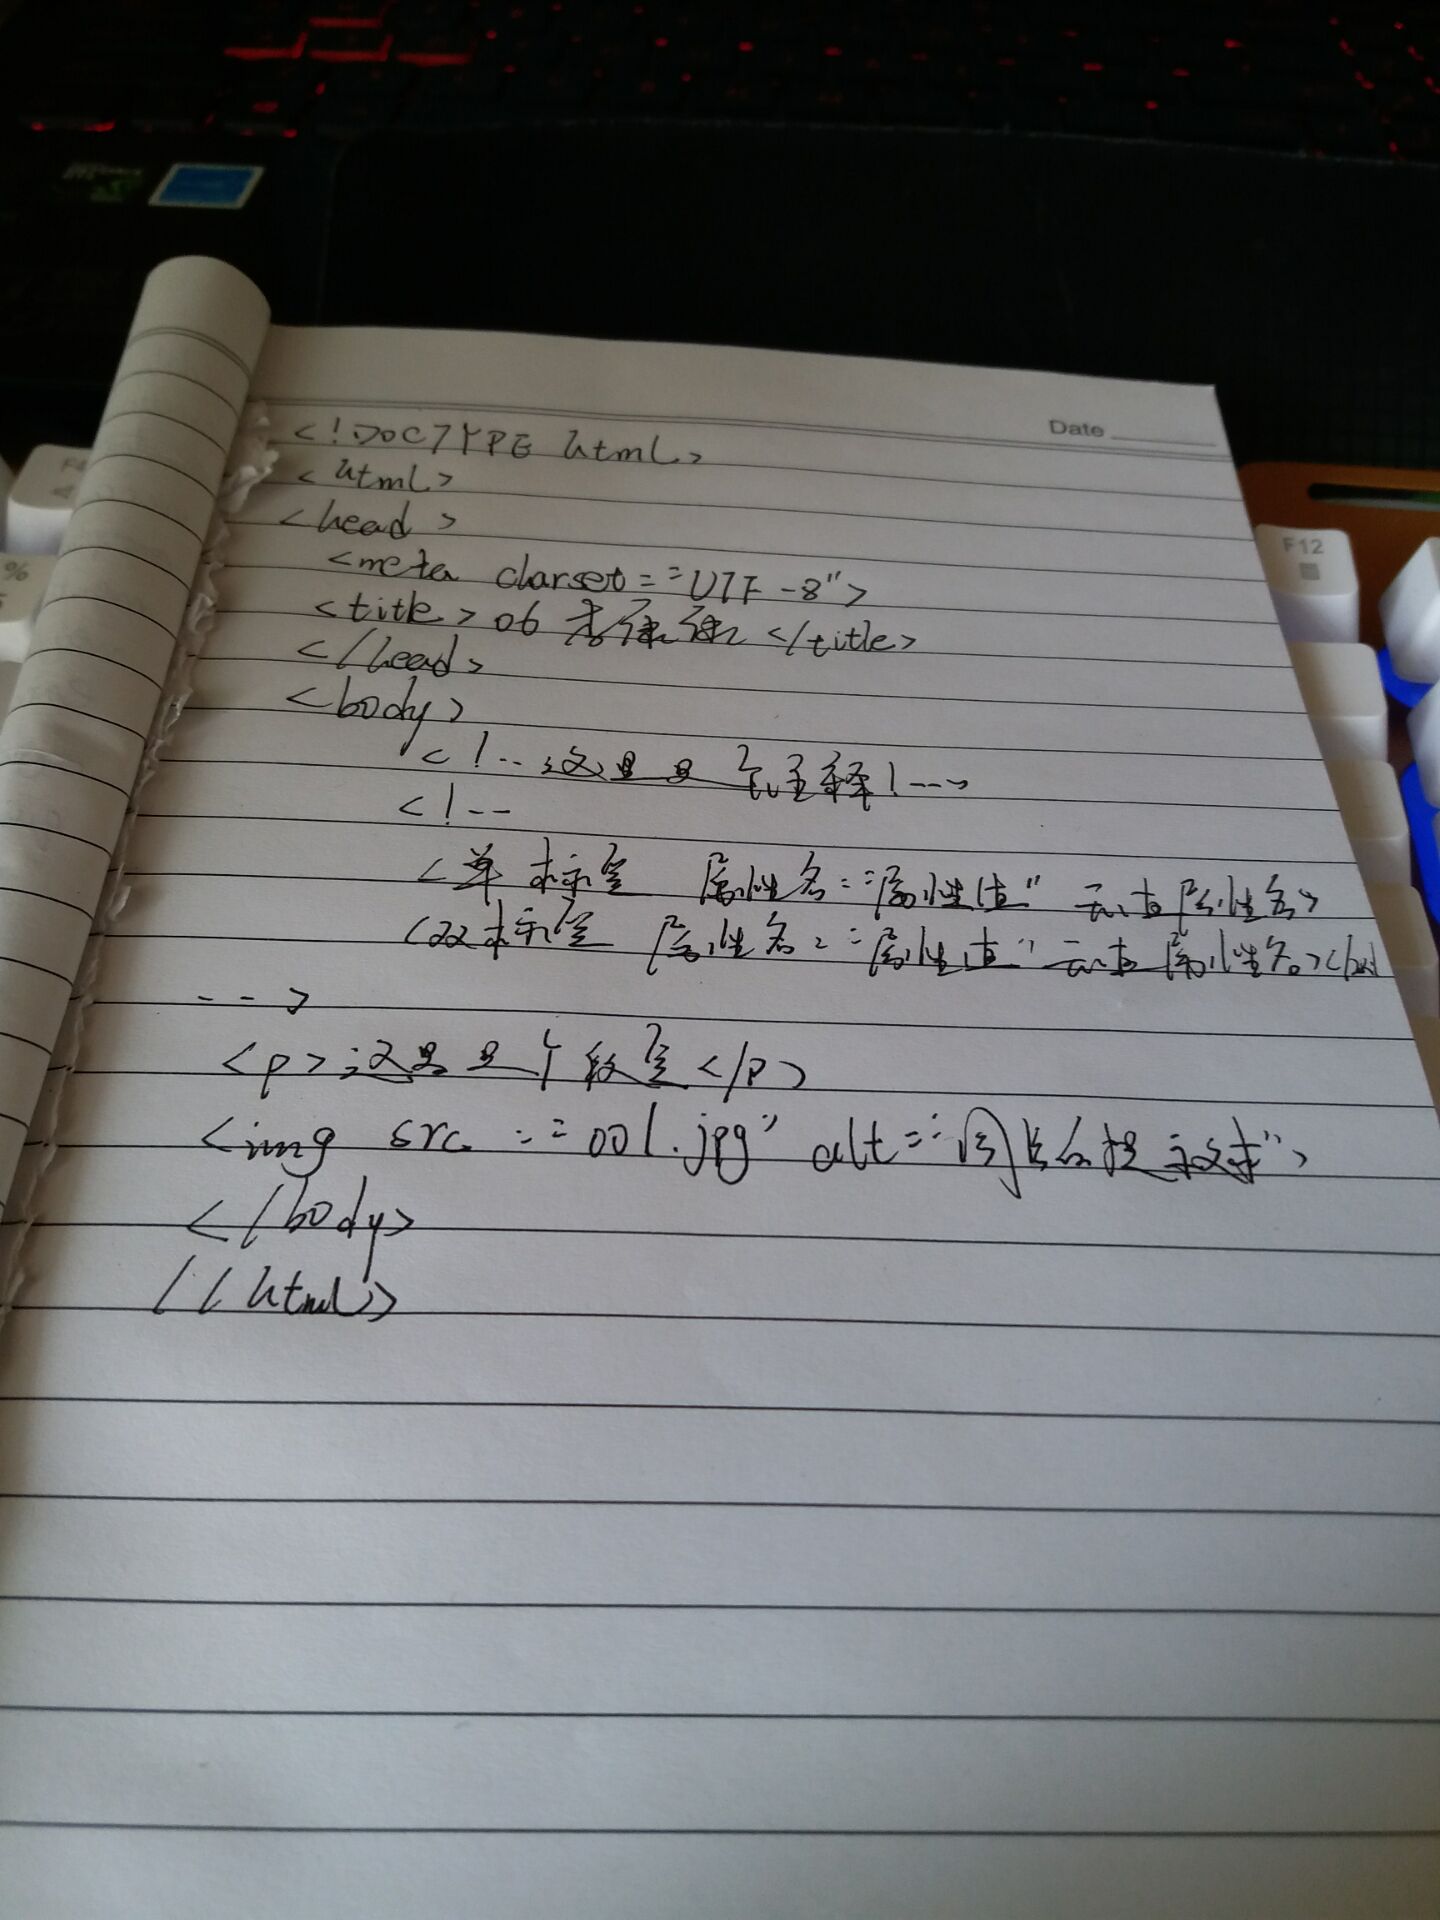 Date
<!DOCTYPE html>
<html>
<head>
<meta charset="UTF-8">
<title>06</title>
</head>
<body>
<!--这里是 注释!-->
<!--
<单标签 属性名="属性值" 属性名>
<双标签 属性名="属性值" 属性名></
-->
<p>这里是个段落</p>
<img src="001.jpg" alt="">
</body>
//html>
F12
%